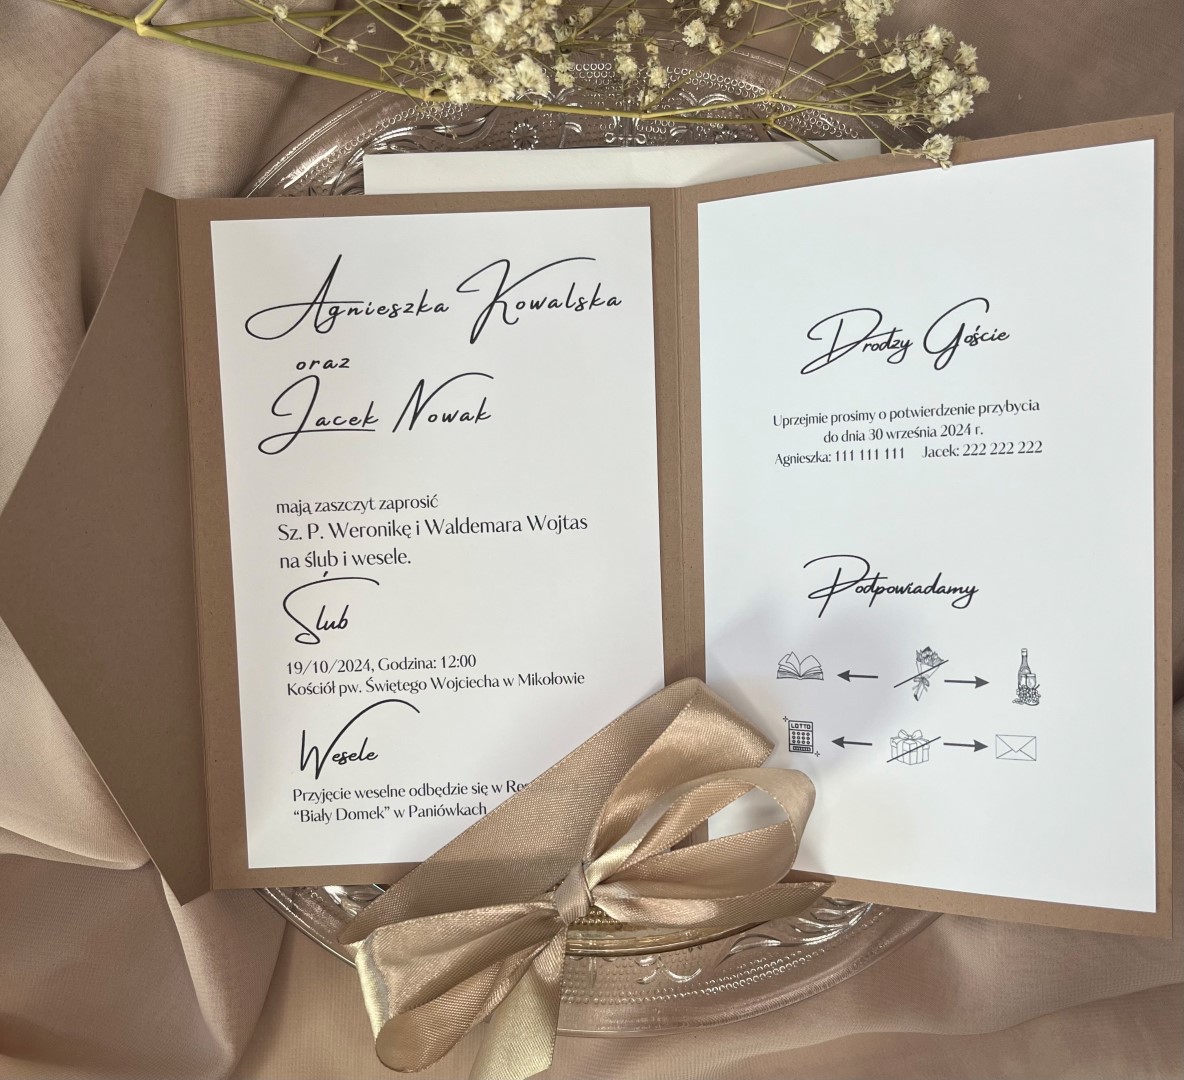 Agnieszka Kowalska
oraz
Jacek Nowak
mają zaszczyt zaprosić
Sz. P. Weronikę i Waldemara Wojtas
na ślub i wesele.
Ślub
19/10/2024, Godzina: 12:00
Kościół pw. Świętego Wojciecha w Mikołowie
Wesele
Przyjęcie weselne odbędzie się w
“Biały Domek” w Paniówkach
Drodzy Goście
Uprzejmie prosimy o potwierdzenie przybycia
do dnia 30 września 2024 r.
Agnieszka: 111 111 111 Jacek: 222 222 222
Podpowiadamy
LOTTO